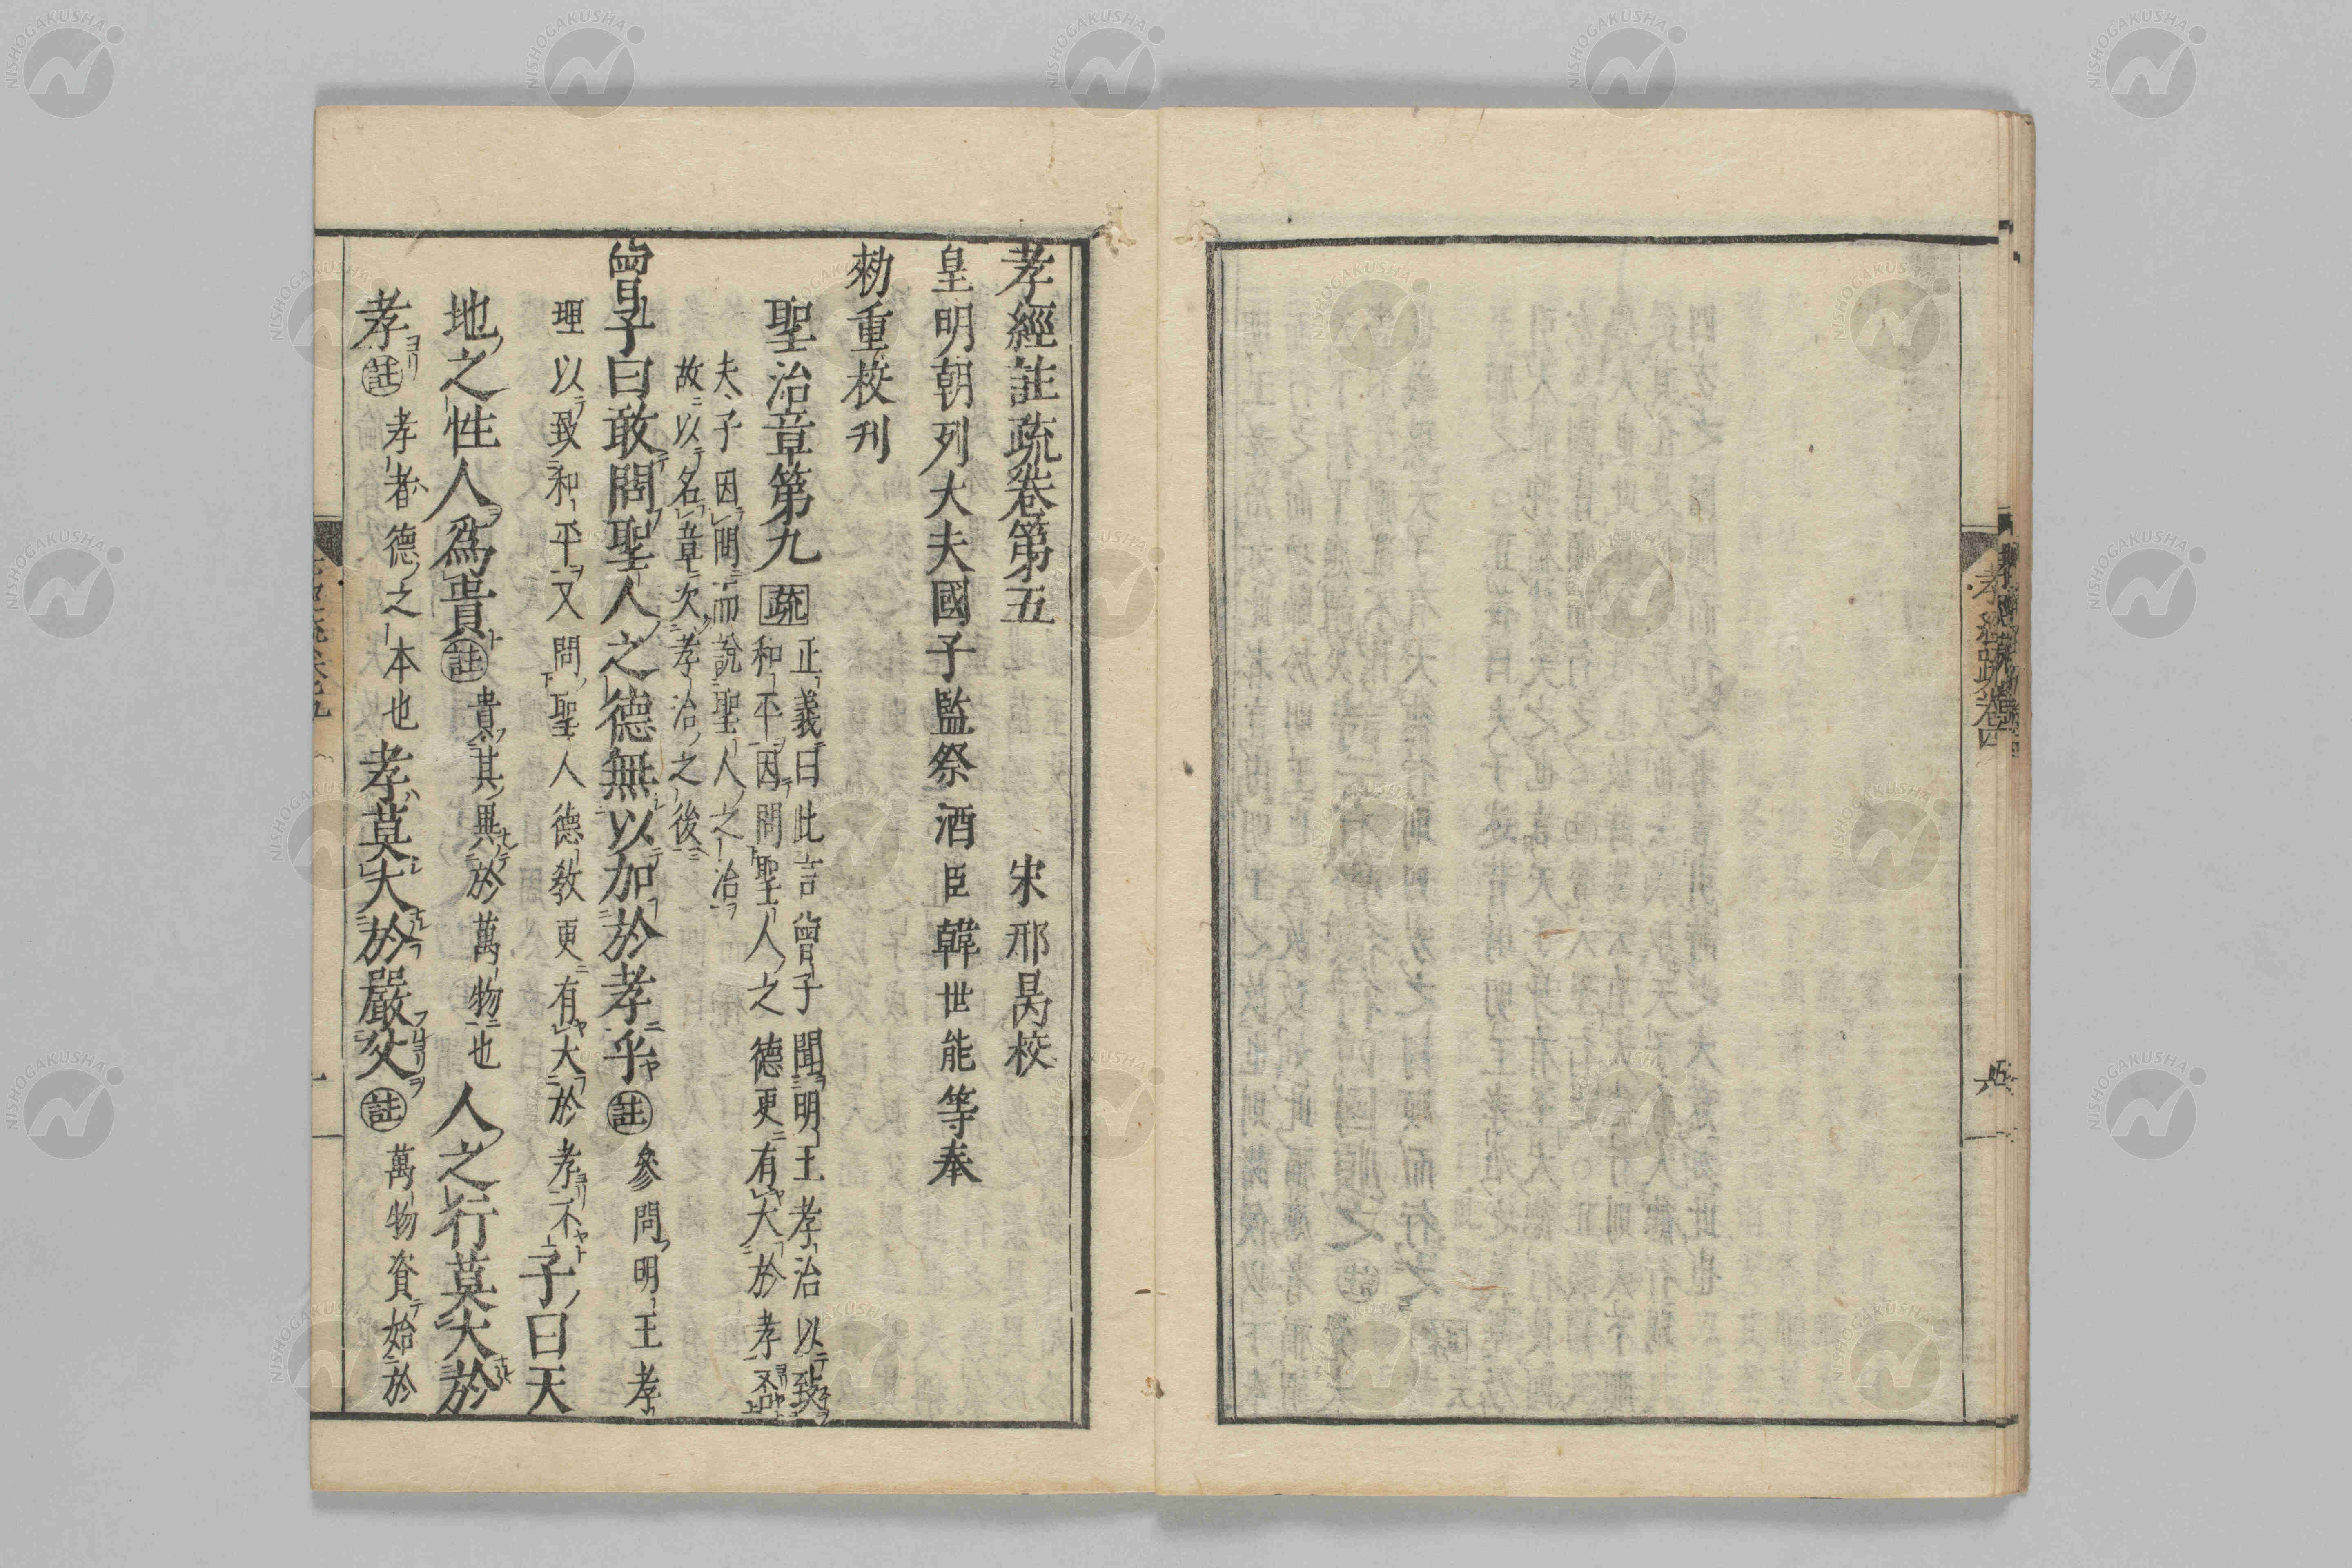 孝經註疏卷第五
宋邢昺校
皇明朝列大夫國子監祭酒臣韓世能等奉
勑重校刊
聖治章第九 疏 正義曰此言曾子聞明王孝治以致
和平因問聖人之德更有大於孝不
夫子因問而說聖人之治
故以名章次孝治之後
曾子曰敢問聖人之德無以加於孝乎 註 參問明王孝
理以致和平又問聖人德敎更有大於孝不 子曰天
地之性人爲貴 註 貴其異於萬物也 人之行莫大於
孝 註 孝者德之本也 孝莫大於嚴父 註 萬物資始於
孝經疏卷四
NISHOGAKUSHA